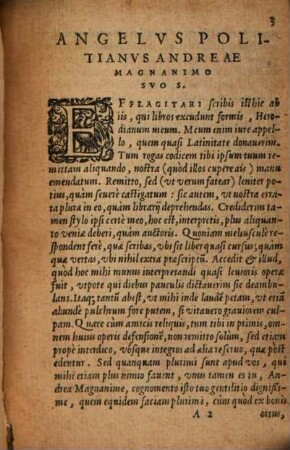 3
ANGELVS POLI-
TIANVS ANDREAE
MAGNANIMO
SVO S.
EFFLAGITARI scribis isthic ab
iis, qui libros excudunt formis, Hero-
dianum meum. Meum enim iure appel-
lo, quem quasi Latinitate donauerim.
Tum rogas codicem tibi ipsum tuum re-
mittam aliquando, nostra (quod illos cupere ais) manu
emendatum. Remitto, sed (ut verum fatear) leniter po-
tius, quàm seuerè castigatum: sic autem, vt nostra erra-
ta plura in eo, quàm librarij deprehendas. Crediderim ta-
men stylo ipsi certè meo, hoc est, interpretis, plus aliquan-
to veniæ deberi, quàm auctoris. Quoniam meliusculè re-
spondent ferè, quæ scribas, vbi sit liber quasi cursus, quàm
quæ vertas, vbi nihil extra præscriptũ. Accedit & illud,
quòd hoc mihi munus interpretandi quasi leuioris operæ
fuit, vtpote qui diebus pauculis dictauerim sic deambu-
lans. Itaq; tantũ abest, vt mihi inde laudẽ petam, vt etiã
abundè pulchrum fore putem, si vitauero grauiorem cul-
pam. Quare cùm amicis reliquis, tum tibi in primis, om-
nem huius operis defensionẽ, non remitto solùm, sed etiam
propè interdico, vósque integros ad alia reseruo, quæ post
edentur. Sed quanquam plurimi sunt apud vos, qui
mihi etiam plus nimio fauent, vnus tamen es tu, An-
drea Magnanime, cognomento isto tuo gentilitio dignissi-
me, quem equidem faciam plurimi, cùm quòd ex bonis
A 2